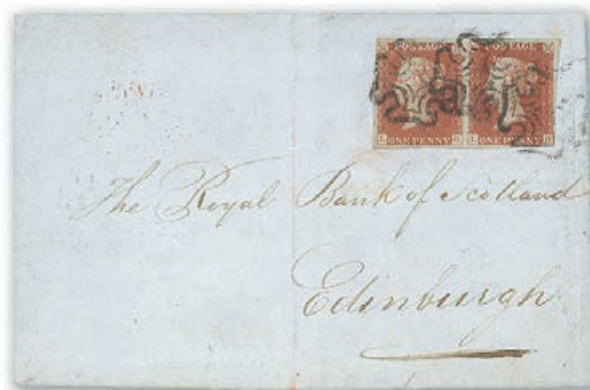 POSTAGE POSTAGE
ONE PENNY ONE PENNY
The Royal Bank of Scotland
Edinburgh